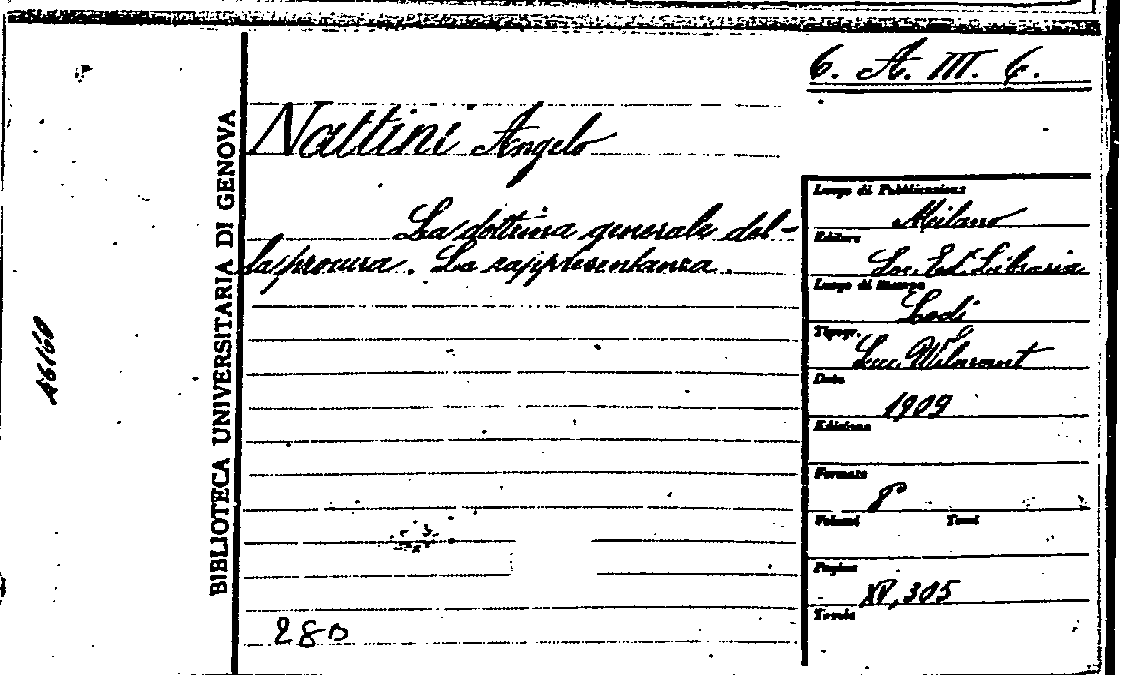 6. A. III. 6.
BIBLIOTECA UNIVERSITARIA DI GENOVA
46160
Nattini Angelo
La dottrina generale del-
la procura. La rappresentanza.
280
Luogo di Pubblicazione
Milano
Editore
Soc. Ed. Libraria
Luogo di Stampa
Lodi
Tipogr.
Succ. Wilmant
Data
1909
Edizione
Formato
8°
Volumi Tomi
Pagine
XV, 305
Tavole